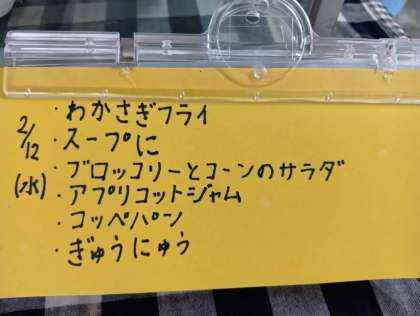 2/12
(水)
・わかさぎフライ
・スープに
・ブロッコリーとコーンのサラダ
・アプリコットジャム
・コッペパン
・ぎゅうにゅう